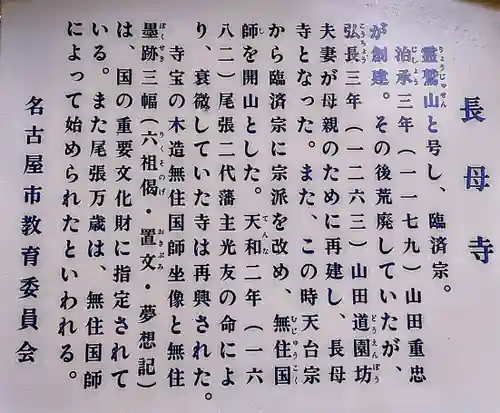 長母寺
霊鷲山と号し、臨済宗。
治承三年(一一七九)山田重忠
が創建。その後荒廃していたが、
弘長三年(一二六三)山田道園坊
夫妻が母親のために再建し、長母
寺となった。また、この時天台宗
から臨済宗に宗派を改め、無住国
師を開山とした。天和二年(一六
八二)尾張二代藩主光友の命によ
り、衰微していた寺は再興された。
寺宝の木造無住国師坐像と無住
墨跡三幅(六祖偈・置文・夢想記)
は、国の重要文化財に指定されて
いる。また尾張万歳は、無住国師
によって始められたといわれる。
名古屋市教育委員会